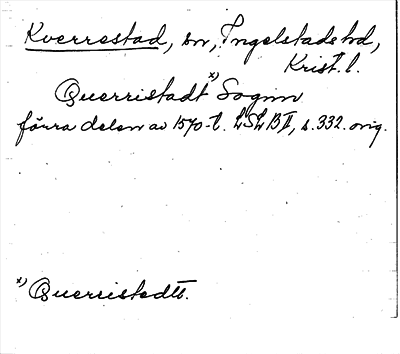 Kverrestad, sn, Ingelstads hd,
Krist. l.
Querristadt x) Sognn
förra delen av 1570-t. LSLB II, s. 332. orig.
x) Querristedtt.